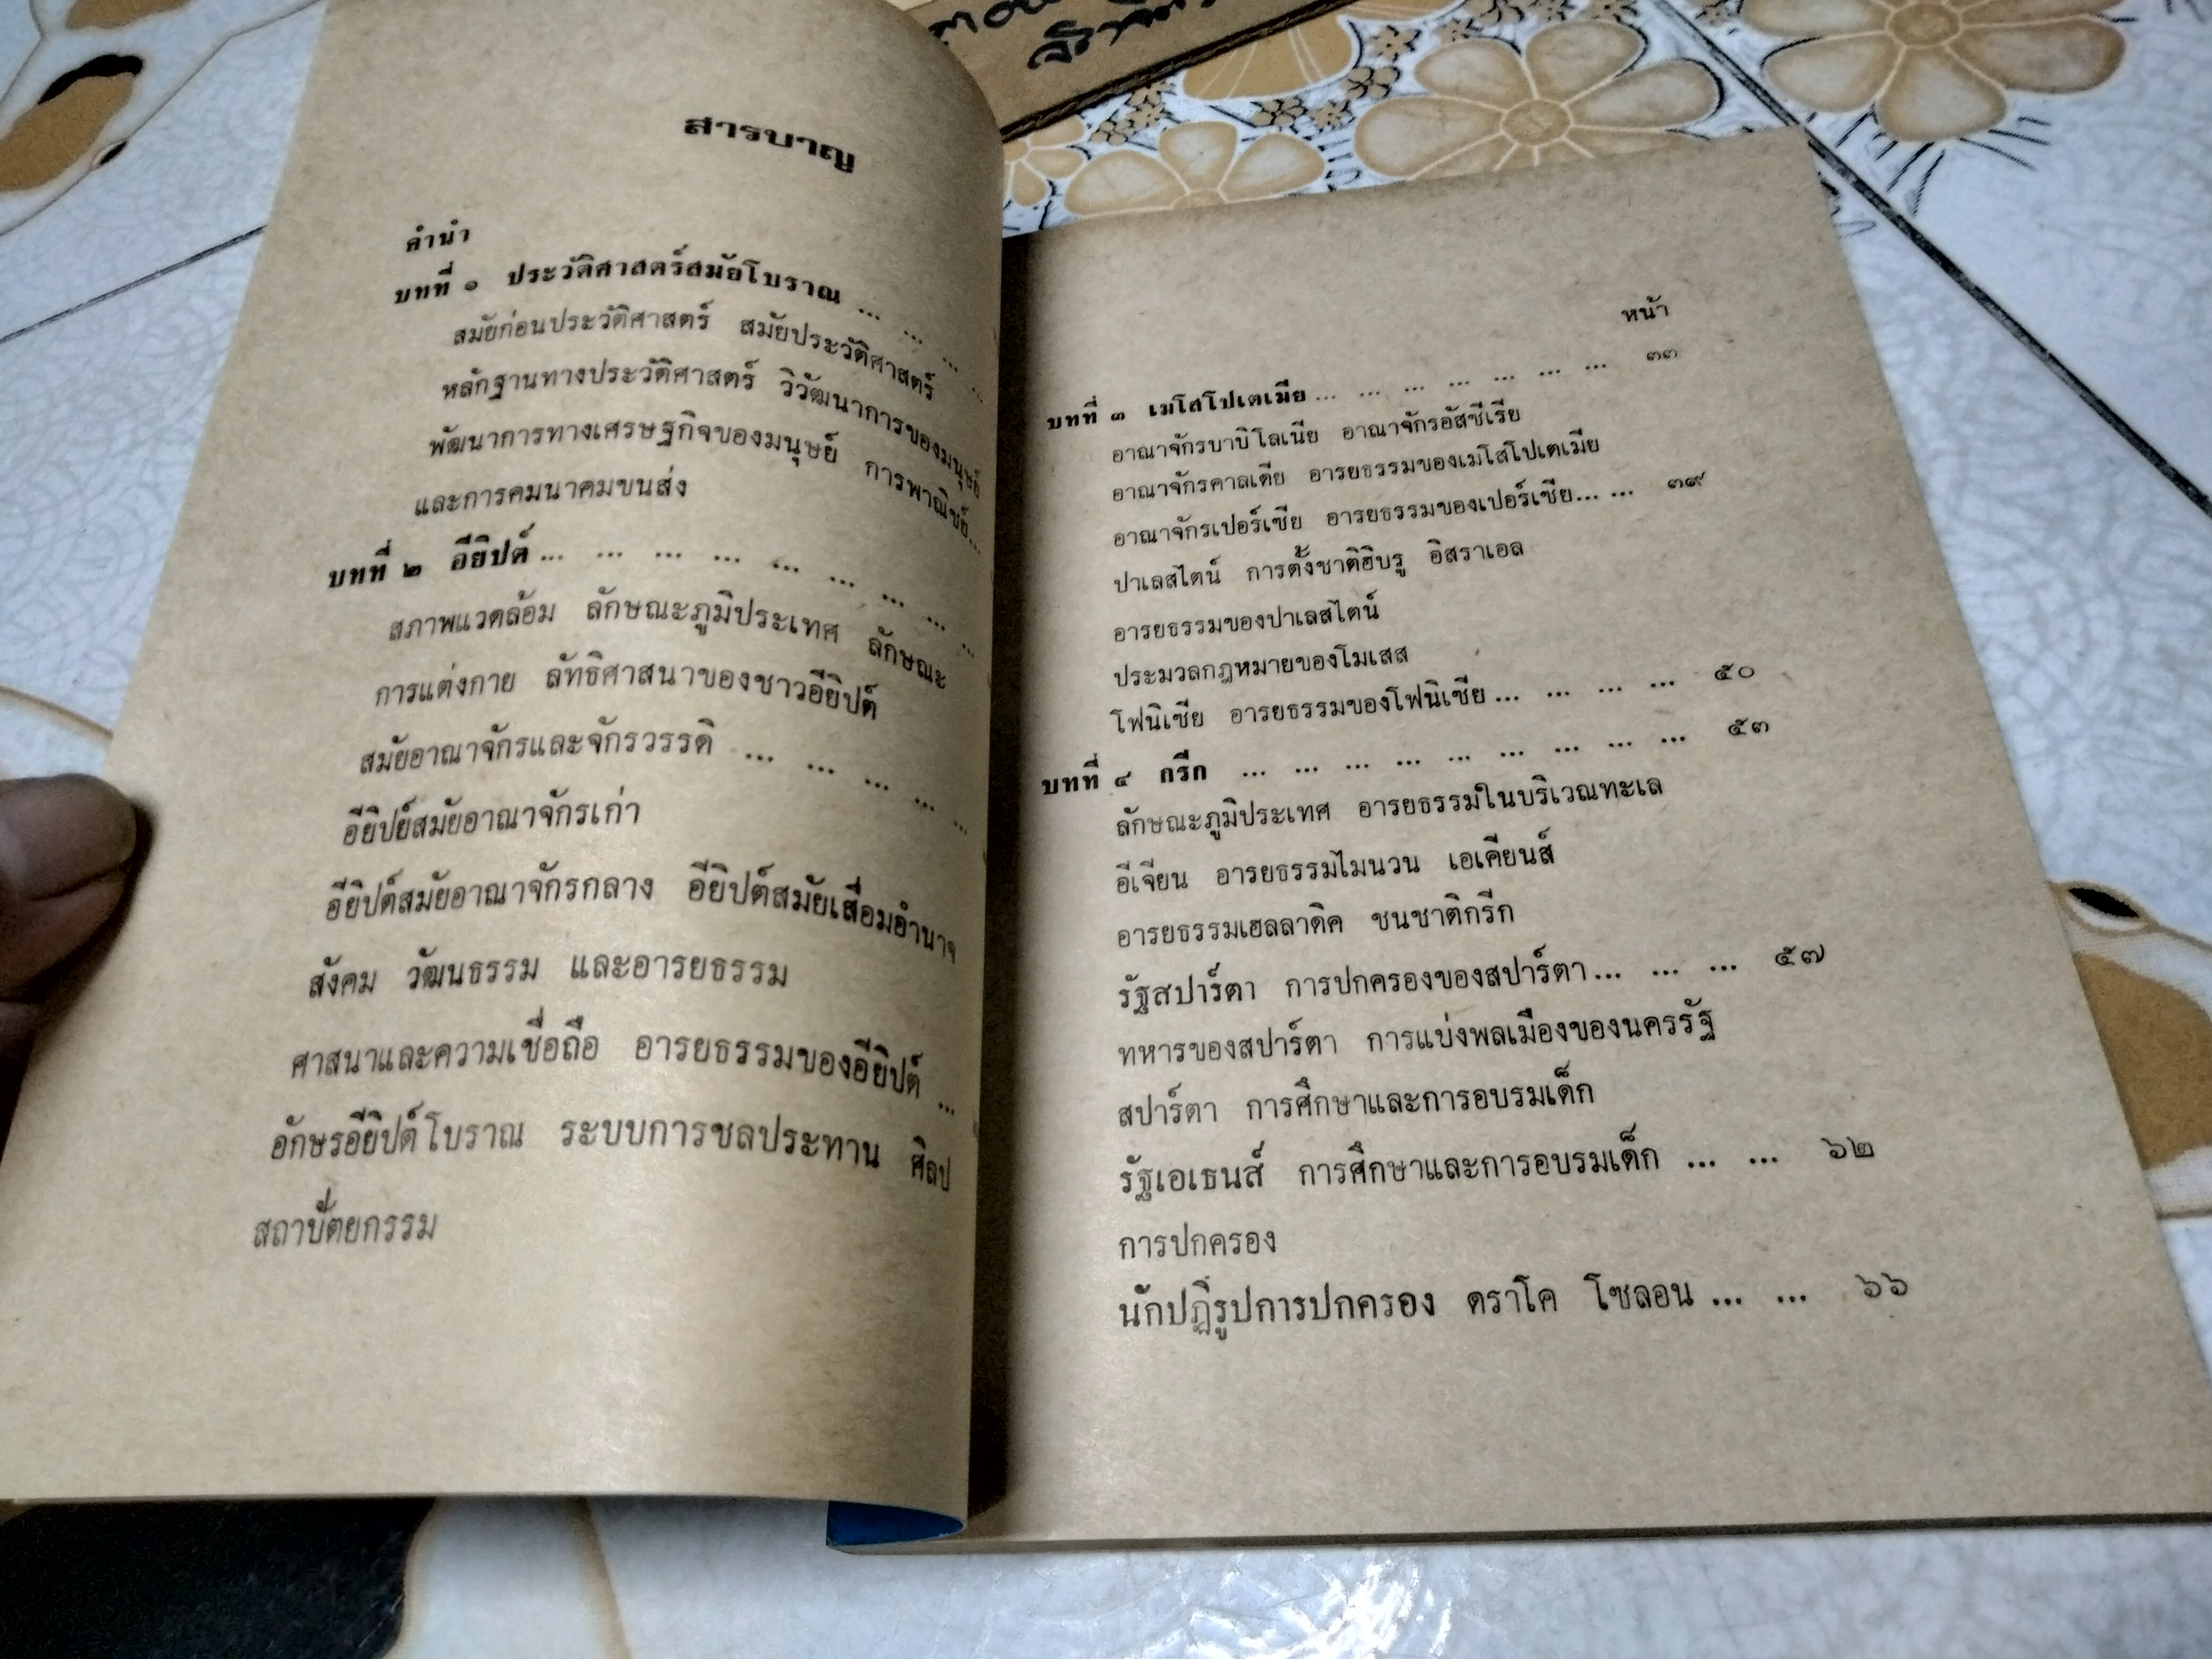 สารบาญ
คำนำ
บทที่ ๑ ประวัติศาสตร์สมัยโบราณ ... ... ... ...
สมัยก่อนประวัติศาสตร์ สมัยประวัติศาสตร์
หลักฐานทางประวัติศาสตร์ วิวัฒนาการของมนุษย์
พัฒนาการทางเศรษฐกิจของมนุษย์ การพาณิชย์...
และการคมนาคมขนส่ง
บทที่ ๒ อียิปต์ ... ... ... ... ... ... ... ... ...
สภาพแวดล้อม ลักษณะภูมิประเทศ ลักษณะ
การแต่งกาย ลัทธิศาสนาของชาวอียิปต์
สมัยอาณาจักรและจักรวรรดิ ... ... ... ... ...
อียิปย์สมัยอาณาจักรเก่า
อียิปต์สมัยอาณาจักรกลาง อียิปต์สมัยเสื่อมอำนาจ
สังคม วัฒนธรรม และอารยธรรม
ศาสนาและความเชื่อถือ อารยธรรมของอียิปต์ ...
อักษรอียิปต์โบราณ ระบบการชลประทาน ศิลป
สถาปัตยกรรม
หน้า
บทที่ ๓ เมโสโปเตเมีย ... ... ... ... ... ... ... ๓๓
อาณาจักรบาบิโลเนีย อาณาจักรอัสซีเรีย
อาณาจักรคาลเดีย อารยธรรมของเมโสโปเตเมีย
อาณาจักรเปอร์เซีย อารยธรรมของเปอร์เซีย... ... ๓๙
ปาเลสไตน์ การตั้งชาติฮิบรู อิสราเอล
อารยธรรมของปาเลสไตน์
ประมวลกฎหมายของโมเสส
โฟนิเซีย อารยธรรมของโฟนิเซีย ... ... ... ... ๕๐
บทที่ ๔ กรีก ... ... ... ... ... ... ... ... ... ๕๓
ลักษณะภูมิประเทศ อารยธรรมในบริเวณทะเล
อีเจียน อารยธรรมไมนวน เอเคียนส์
อารยธรรมเฮลลาดิค ชนชาติกรีก
รัฐสปาร์ตา การปกครองของสปาร์ตา ... ... ... ๕๗
ทหารของสปาร์ตา การแบ่งพลเมืองของนครรัฐ
สปาร์ตา การศึกษาและการอบรมเด็ก
รัฐเอเธนส์ การศึกษาและการอบรมเด็ก ... ... ๖๒
การปกครอง
นักปฏิรูปการปกครอง ดราโค โซลอน ... ... ๖๖